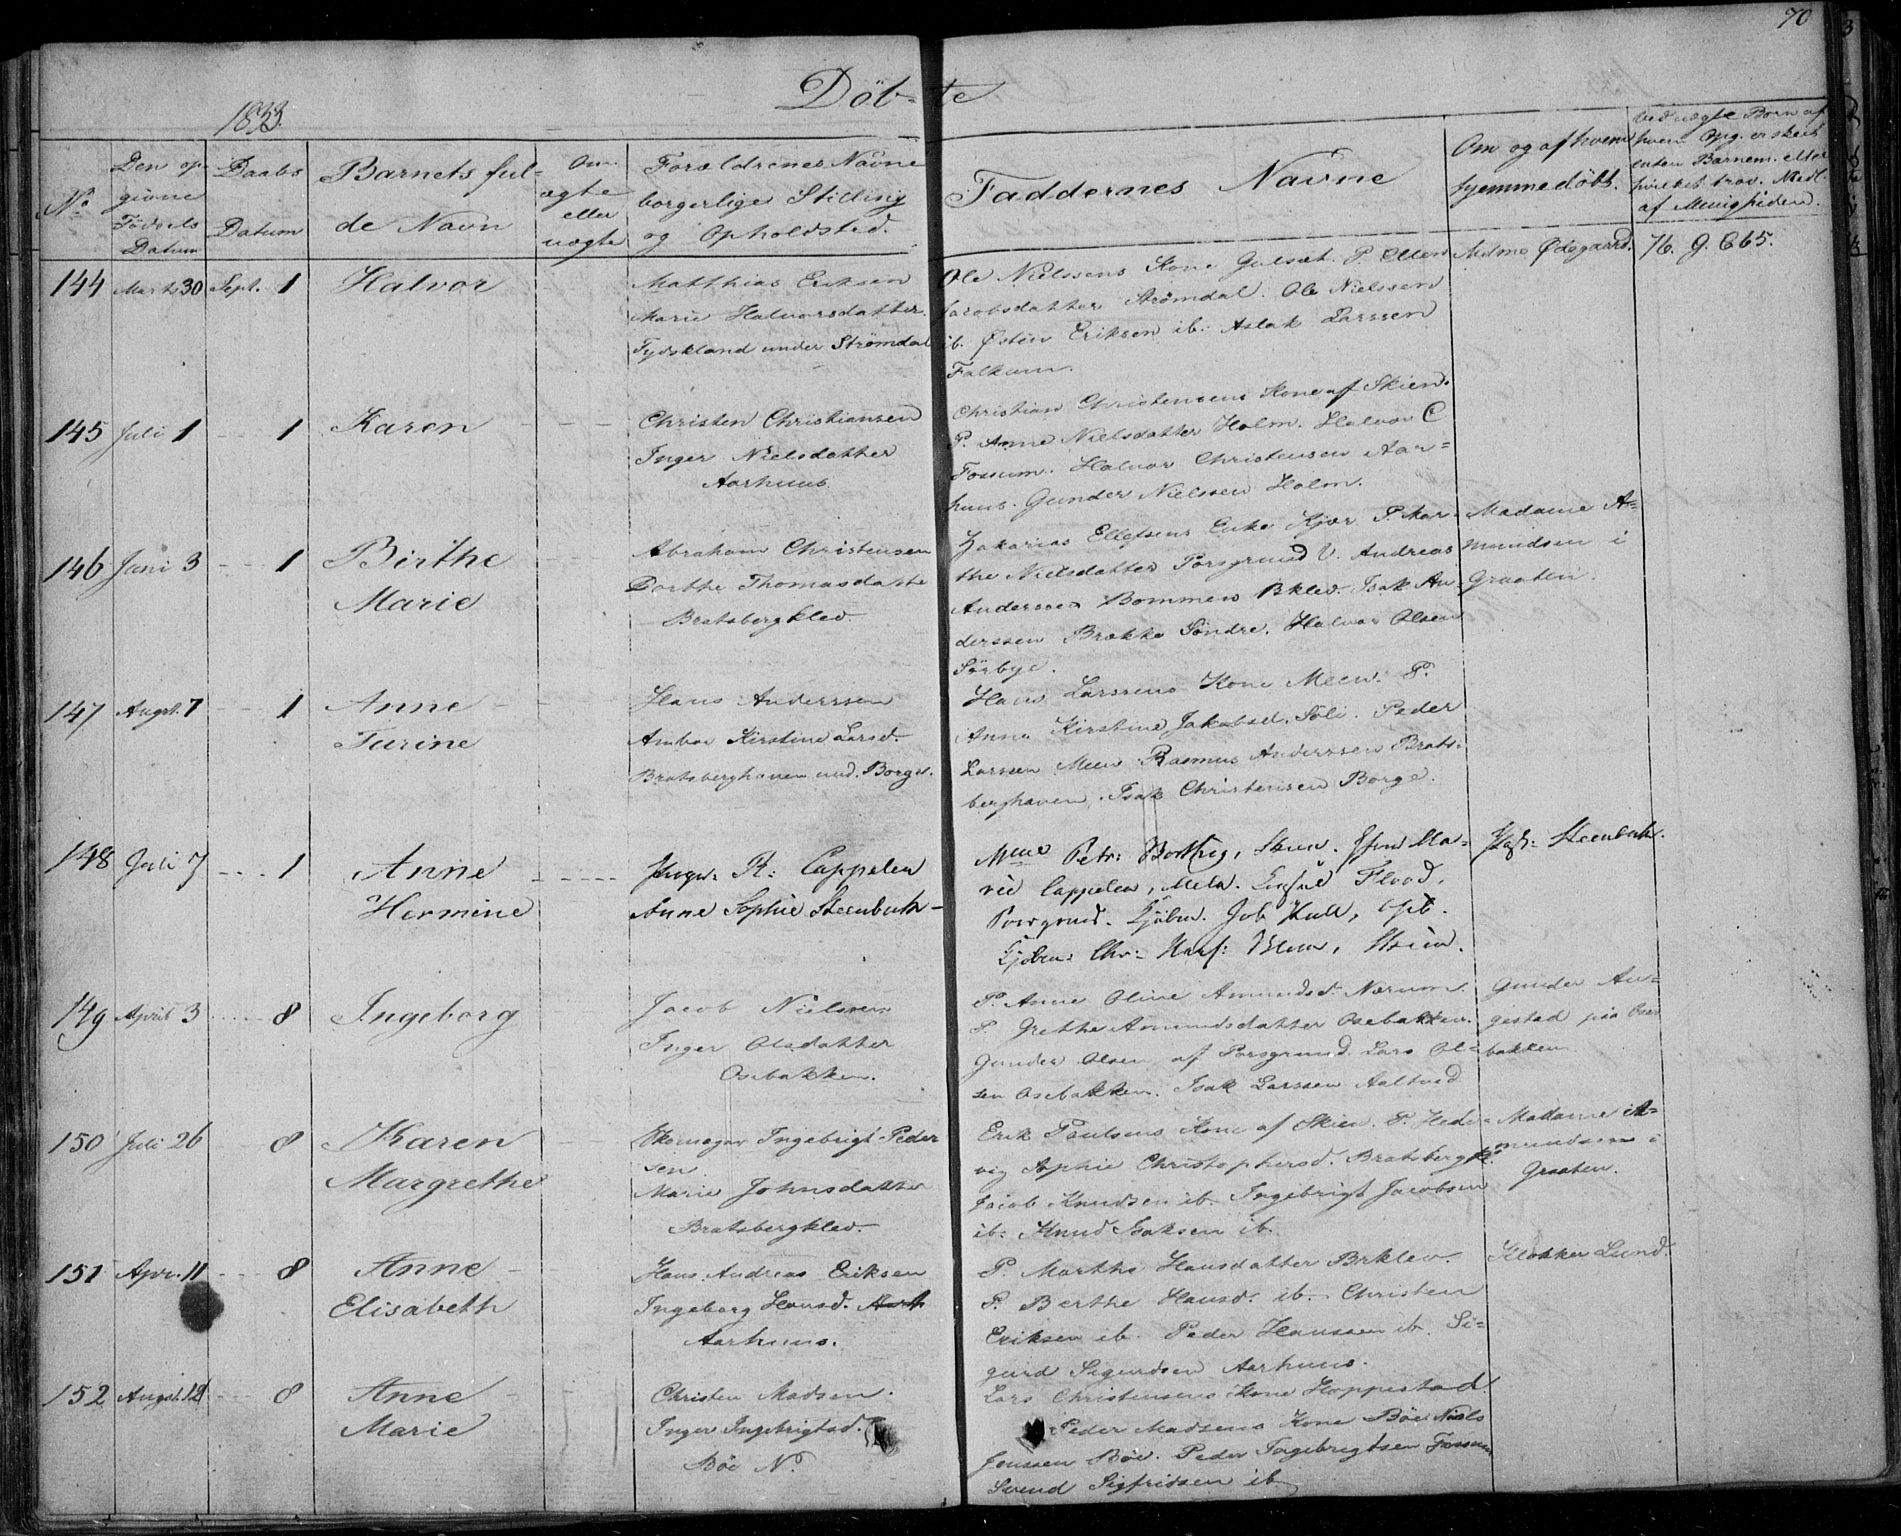 70
Döbte
1833.
No
Den op-
givne
Födsels
Datum
Daabs
Datum
Barnets ful-
de Navn
Om
ægte
eller
uægte
Forældrenes Navne
borgerlige Stilling
og Opholdsted.
Faddernes Navne
Om og af hvem
hjemmedöbt.
Ved uægte Börn af
hvem Opg. er skeet
enten Barnem. eller
hvilket trov. Medl.
af Menigheden.
144 Marts 30 Sept. 1 Halvor
Matthias Eriksen
Marie Halvorsdatter
Tydskland under Strömdal
Ole Nielssens Kone Gulset. P. Ellen
Jacobsdatter Strømdal. Ole Nielssen
ib. Østen Eriksen ib. Aslak Larssen
Falkum.
Ødegaard. 76. J. C 65.
145 Juli 1 1 Karen
Christen Christiansen
Inger Nielsdatter
Aarhuus
Christian Christensens Kone af Skien.
P. Anne Nielsdatter Holm. Halvor C
Fossum. Halvor Christensen Aar=
huus. Gunder Nielssen Holm.
146 Juni 3 1 Birthe
Marie
Abraham Christensen
Dorthe Thomasdatte
Bratsbergklev
Zakarias Ellefsens Enke Kjær P. Mar-
the Nielsdatter Porsgrund V. Andreas
Anderssen Bommen Bklev. Isak An-
derssen Brække Söndre. Halvor Olsen
Sörbye.
Madame A=
mundsen i
Graaten.
147 Augst. 7 1 Anne
Turine
Hans Anderssen
Ambor Kirstine Larsd.
Bratsberghaven und. Borge.
Hans Larssens Kone Meen. P.
Anne Kirstine Jakobsd. Söli. Peder
Larssen Meen. Rasmus Anderssen Brats-
berghaven. Isak Christensen Borge.
148 Juli 7 1 Anne
Hermine
R: Cappelen
Anne Sophie Steenbuch
Petr: Skien. Ma-
rie Cappelen, Flood,
Porsgrund. Kjöbm.
Kjöbm: Chr: Blom, Skien.
Steenbuch.
149 April 3 8 Ingeborg
Jacob Nielssen
Inger Olsdatter
Osebakken.
P. Anne Oline Amundsd. Nærum.
P. Grethe Amundsdatter Osebakken.
Gunder Olsen af Porsgrund. Lars Ol=
sen Osebakken. Isak Larssen Aaltved
Gunder An=
gestad paa Ose
bakken
150 Juli 26 8 Karen
Margrethe
Skomager Ingebrigt Peder
sen
Marie Johnsdatter
Bratsbergklev.
Erik Poulsens Kone af Skien. P. Hede-
vig Sophie Christophersd. Bratsbergkl.
Jacob Knudsen ib. Ingebrigt Jacobsen
ib. Knud Isaksen ib.
Madame A=
mundsen i
Graaten.
151 Apr. 11 8 Anne
Elisabeth
Hans Andreas Eriksen
Ingeborg Hansd.
Aarhuus.
P. Marthe Hansdatter Brklev.
P. Berthe Hansd. ib. Christen
Eriksen ib. Peder Hanssen ib. Si=
gurd Sigurdsen Aarhuus.
Klokker Lund.
152 Augst. 12 8 Anne
Marie
Christen Madsen.
Inger Ingebrigtsd.
Böe N.
Lars Christensens Kone Hoppestad.
Peder Madsens Kone Böe. Niels
Jonssen Böe. Peder Ingebrigtsen Fossum
Svend Sigfridsen ib.